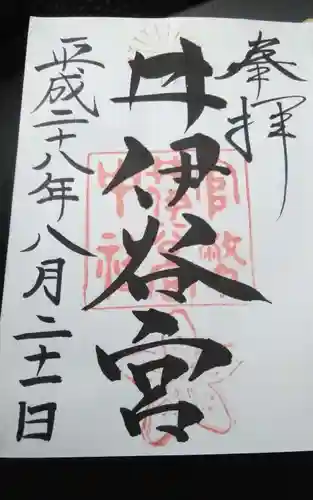 奉拝
井伊谷宮
平成二十八年八月二十一日
官幣
中社